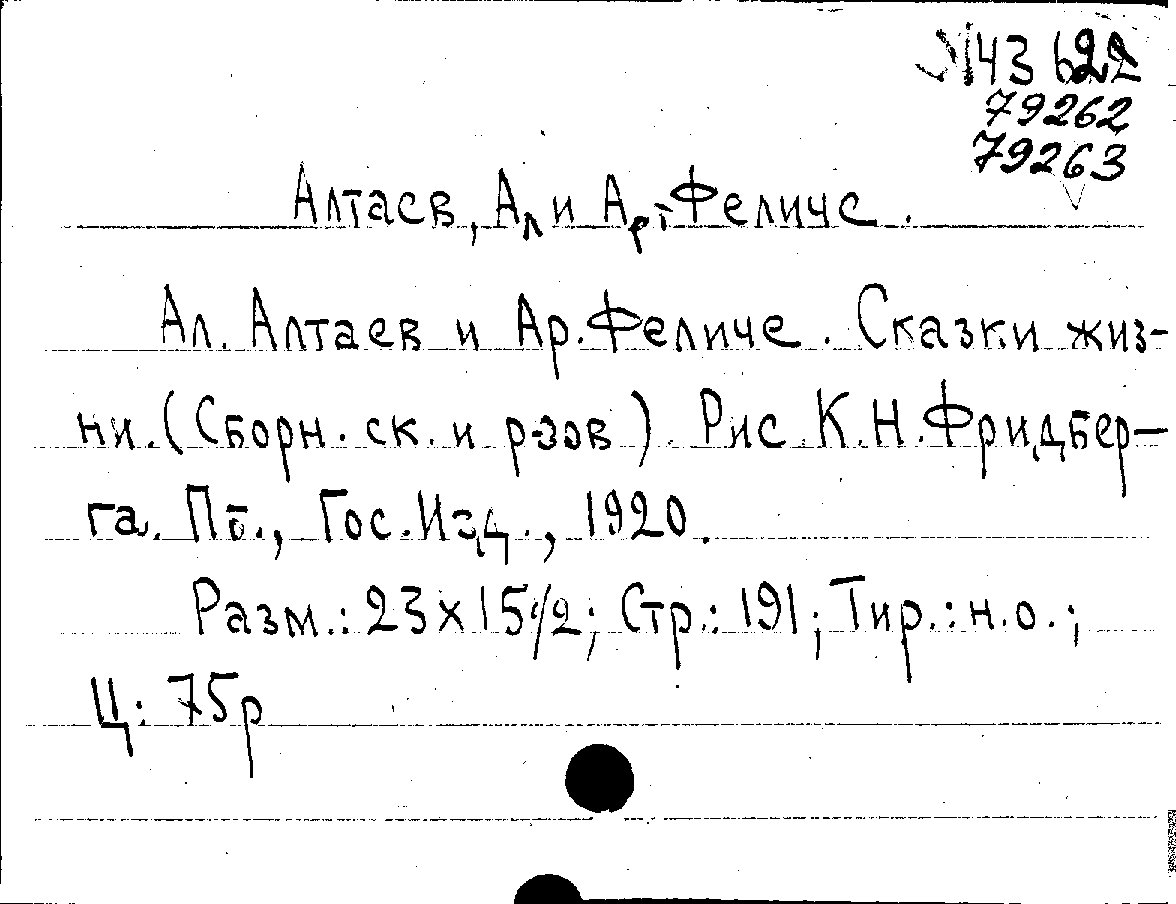 № 43 622
79262
79263
Алтаев, Ал и Ар. Феличе.
Ал. Алтаев и Ар. Феличе. Сказки жиз-
ни. (Сборн. ск. и р-зов). Рис. К.Н. Фридбер-
га. Пб., Гос. Изд., 1920.
Разм.: 23x15 1/2; Стр.: 191; Тир.: н.о.;
Ц: 75р